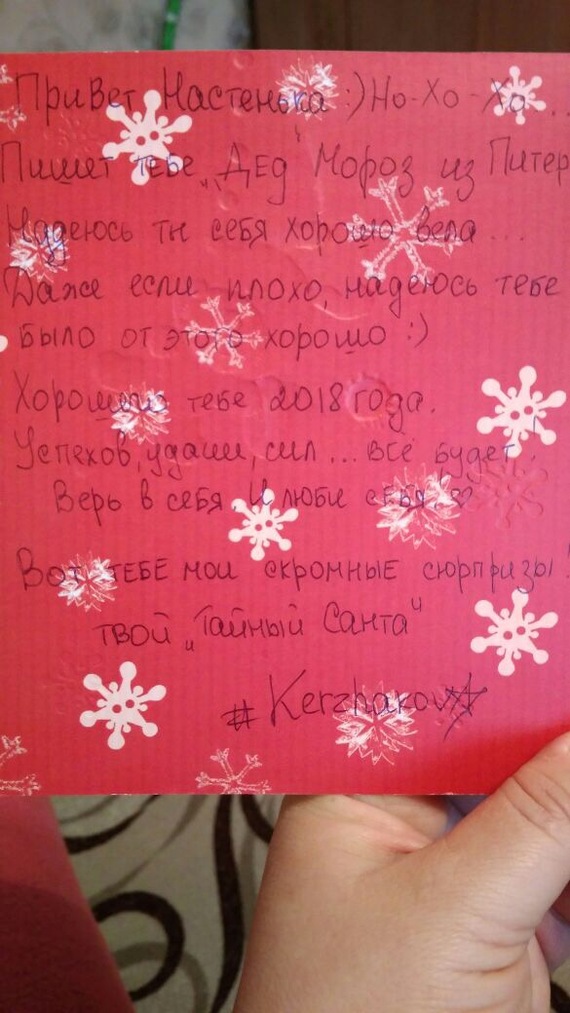 Привет Настенька :) Но-Хо-Хо...
Пишет тебе „Дед Мороз из Питер
Надеюсь ты себя хорошо вела...
Даже если плохо, надеюсь тебе
было от этого хорошо :)
Хорошего тебе 2018 года.
Успехов, удачи, сил... всё будет!
Верь в себя. И люби себя! ♡
Вот тебе мои скромные сюрпризы!
твой „Тайный Санта"
# Kerzhakov☆